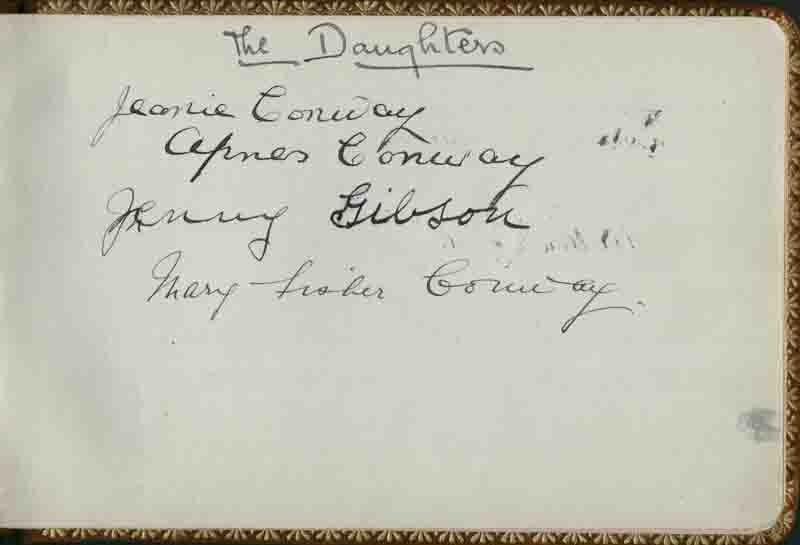 The Daughters
Jeanie Conway
Agnes Conway
Jenny Gibson
Mary Fisher Conway.